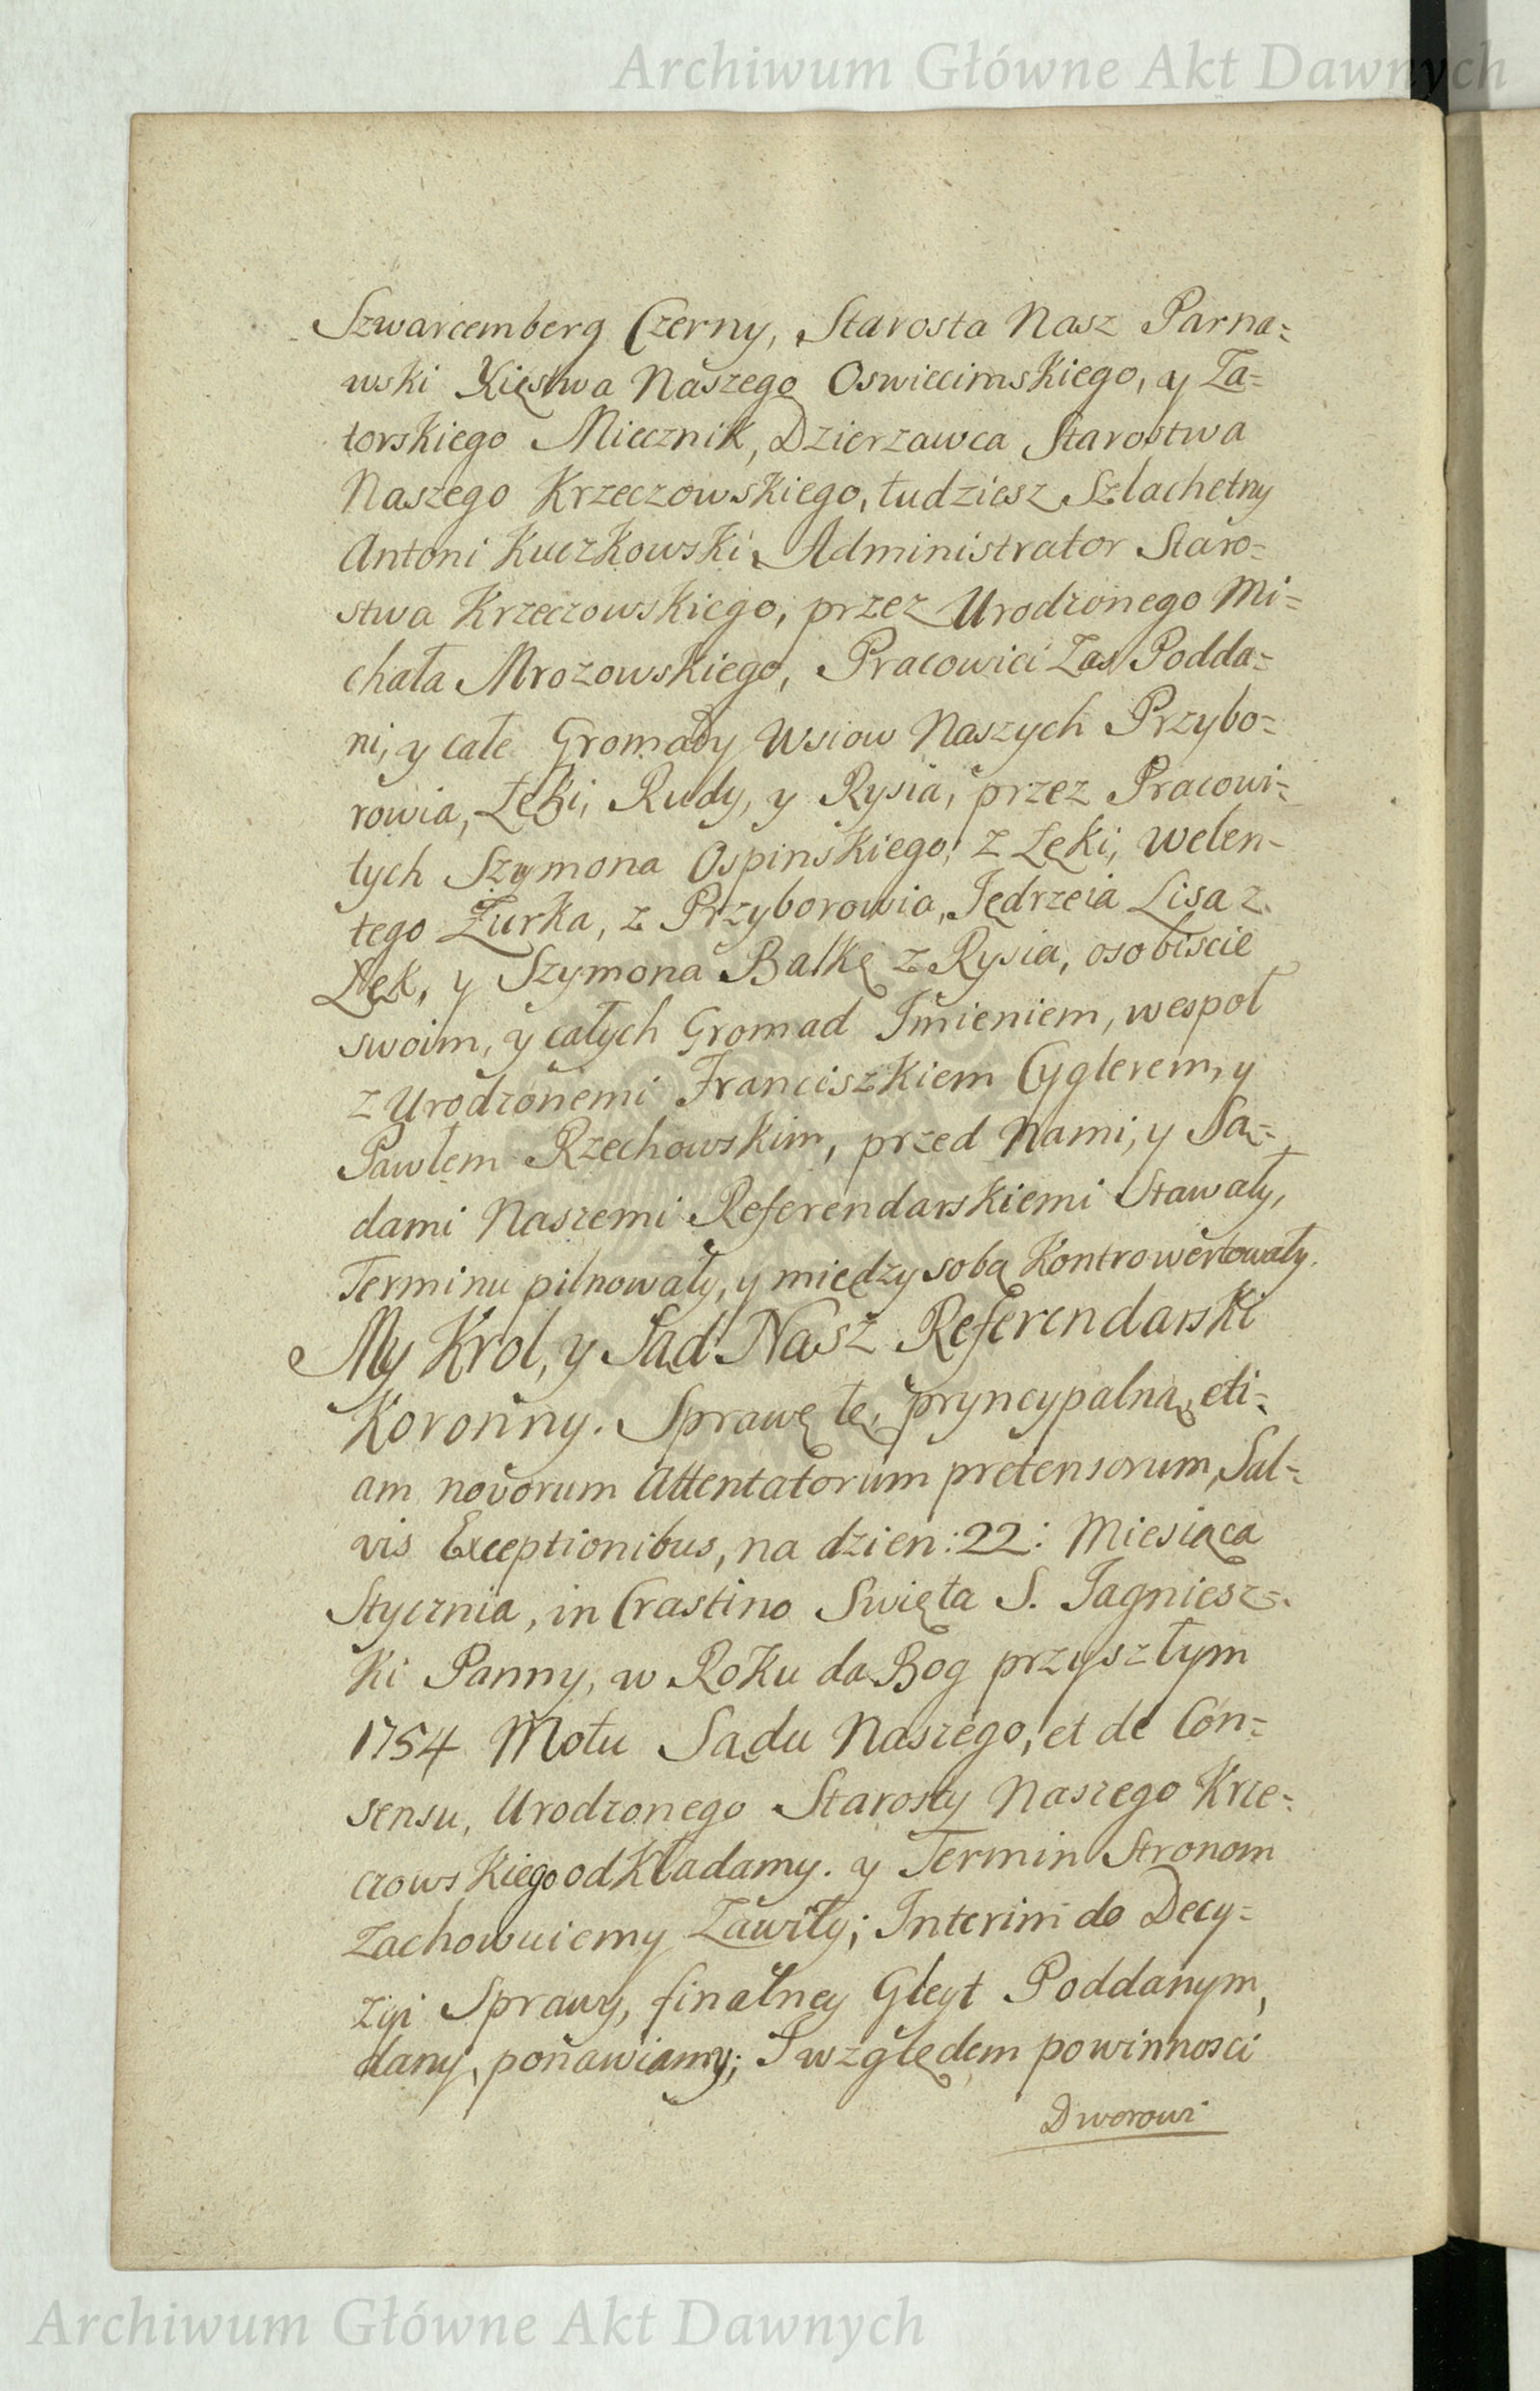 Archiwum Główne Akt Dawnych
Szwarcemberg Czerny, Starosta Nasz Parna=
wski Xięstwa Naszego Oswiecimskiego, y Za=
torskiego Miecznik, Dzierzawca Starostwa
Naszego Krzeczowskiego, tudziesz Szlachetny
Antoni Kuczkowski Administrator Staro=
stwa Krzeczowskiego, przez Urodzonego Mi=
chała Mrozowskiego, Pracowici Zas Podda=
ni, y całe Gromady Wsiow Naszych Przybo=
rowia, Łęki, Rudy, y Rysia, przez Pracowi=
tych Szymona Ospinskiego, z Łęki, Welen=
tego Zurka, z Przyborowia, Jędrzeia Lisa z
Łęk, y Szymona Balkę z Rysia, osobiscie
swoim, y całych Gromad Jmieniem, wespoł
z Urodzonemi Franciszkiem Cyglerem, y
Pawłem Rzechowskim, przed Nami, y Są=
dami Naszemi Referendarskiemi Stawały,
Terminu pilnowały, y między sobą Kontrowertowały.
My Krol, y Sąd Nasz Referendarski
Koronny. Sprawę tę, pryncypalną, eti=
am novorum Attentatorum pretensorum, Sal=
vis Exceptionibus, na dzien :22: Miesiąca
Stycznia, in Crastino Swięta S. Jagniesz=
ki Panny, w Roku da Bog przyszłym
1754 Motu Sądu Naszego, et de Con=
sensu, Urodzonego Starosty Naszego Krze=
czowskiego odkładamy. y Termin Stronom
zachowuiemy Zawiły; Interim do Decy=
zyi Sprawy, finalney Gleyt Poddanym,
dany, ponawiamy; J względem powinnosci
Dworowi
Archiwum Główne Akt Dawnych